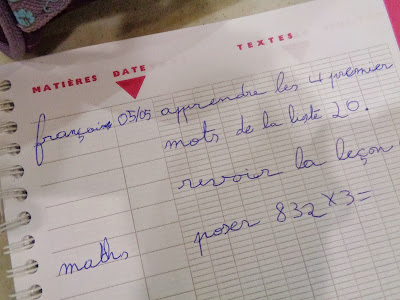 MATIÈRES DATE TEXTES
français 05/05 apprendre les 4 premier
mots de la liste 20.
revoir la leçon
maths poser 832 x 3 =